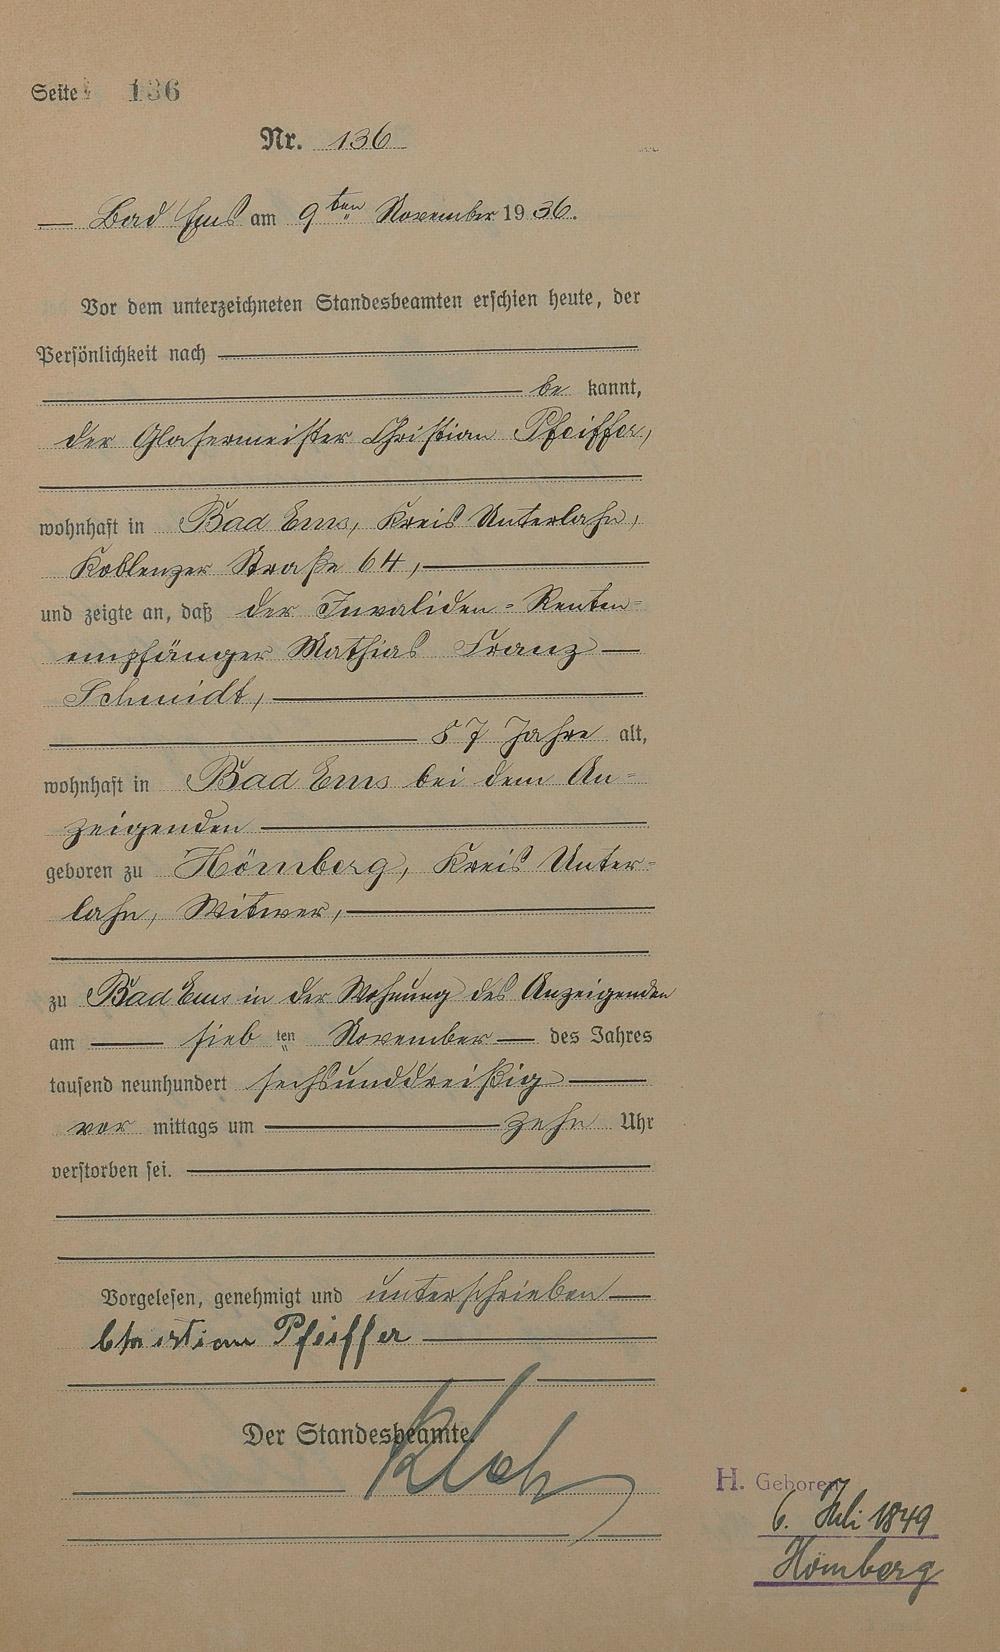 Seite 136
Nr. 136
Bad Ems am 9ten November 1936.
Vor dem unterzeichneten Standesbeamten erschien heute, der
Persönlichkeit nach
be kannt,
der Glasermeister Christian Pfeiffer,
wohnhaft in Bad Ems, Kreis Unterlahn,
Koblenzer Straße 64,
und zeigte an, daß der Invaliden-Renten-
empfänger Mathias Franz
Schmidt,
87 Jahre alt,
wohnhaft in Bad Ems bei dem An-
zeigenden
geboren zu Hömberg, Kreis Unter-
lahn, Witwer,
zu Bad Ems in der Wohnung des Anzeigenden
am sieb ten November des Jahres
tausend neunhundert sechsunddreißig
vor mittags um zehn Uhr
verstorben sei.
Vorgelesen, genehmigt und unterschrieben
Christian Pfeiffer
Der Standesbeamte.
H. Geboren
6. Juli 1849
Hömberg